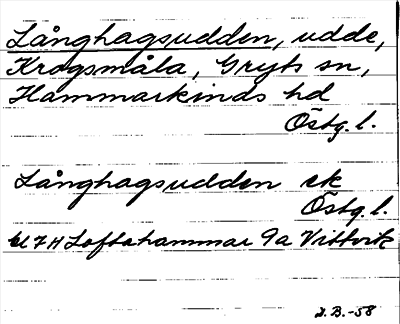 Långhagsudden, udde,
Krogsmåla, Gryts sn,
Hammarkinds hd
Östg. l.
Långhagsudden ek
Östg. l.
7H Loftahammar 9a Vittvik
J.B.-58